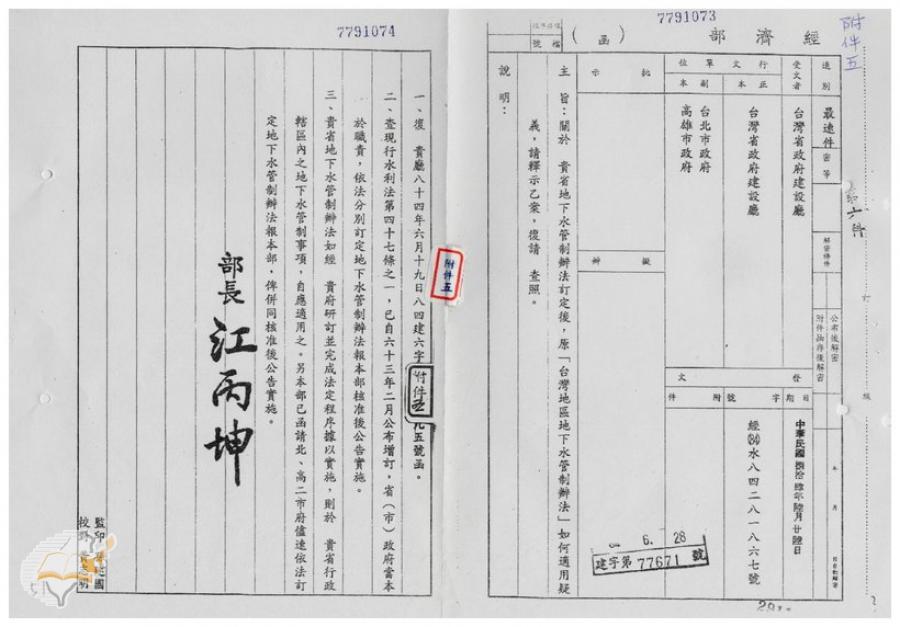 附件五
7791073
經濟部
（函）
檔號
速別
最速件
密等
解密條件
公布後解密
附件抽存後解密
年月
受文者
台灣省政府建設廳
行文單位
正本
台灣省政府建設廳
副本
台北市政府
高雄市政府
發文
日期
中華民國捌拾肆年陸月廿陸日
字號
經(84)水八四二八一八六七號
附件
批示
擬辦
主旨：關於　貴省地下水管制辦法訂定後，原「台灣地區地下水管制辦法」如何適用疑
義，請釋示乙案，復請　查照。
說明：
6. 28
建字第77671號
訂
線
7791074
一、復　貴廳八十四年六月十九日八四建六字
九五號函。
附件五
附件五
二、查現行水利法第四十七條之一，已自六十三年二月公布增訂，省（市）政府當本
於職責，依法分別訂定地下水管制辦法報本部核准後公告實施。
三、貴省地下水管制辦法如經　貴府研訂並完成法定程序據以實施，則於　貴省行政
轄區內之地下水管制事項，自應適用之。另本部已函請北、高二市府儘速依法訂
定地下水管制辦法報本部，俾併同核准後公告實施。
部長江丙坤
監印
校對